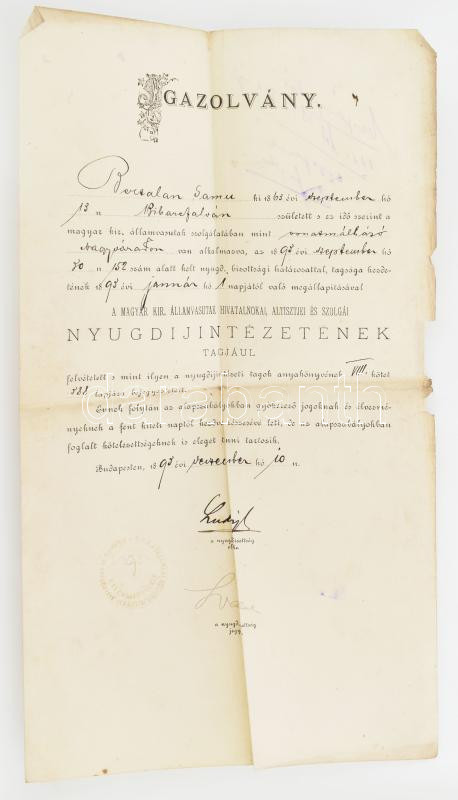 IGAZOLVÁNY.
Bertalan Samu ki 1863 évi szeptember hó
13 n Biharfalván született s ez idő szerint a
magyar kir. államvasutak szolgálatában mint vonatmálházó
Nagyváradon van alkalmazva, az 1893 évi szeptember hó
n 152 szám alatt kelt nyugd. bizottsági határozattal, tagsága kezde-
tének 1893 évi január hó 1 napjától való megállapításával
A MAGYAR KIR. ÁLLAMVASUTAK HIVATALNOKAI, ALTISZTJEI ÉS SZOLGÁI
NYUGDIJINTÉZETÉNEK
TAGJÁUL
felvétetett s mint ilyen a nyugdijintézeti tagok anyakönyvének VIII. kötet
lapjára bejegyeztetett.
Ennek folytán az alapszabályokban gyökerező jogoknak és élvezmé-
nyeknek a fent kitett naptól kezdve részesévé lett, de az alapszabályokban
foglalt kötelezettségeknek is eleget tenni tartozik.
Budapesten, 1893 évi deczember hó 10 n.
Ludvigh
a nyugdíjosztály
a nyugdíjosztály
jegy.
darabanth